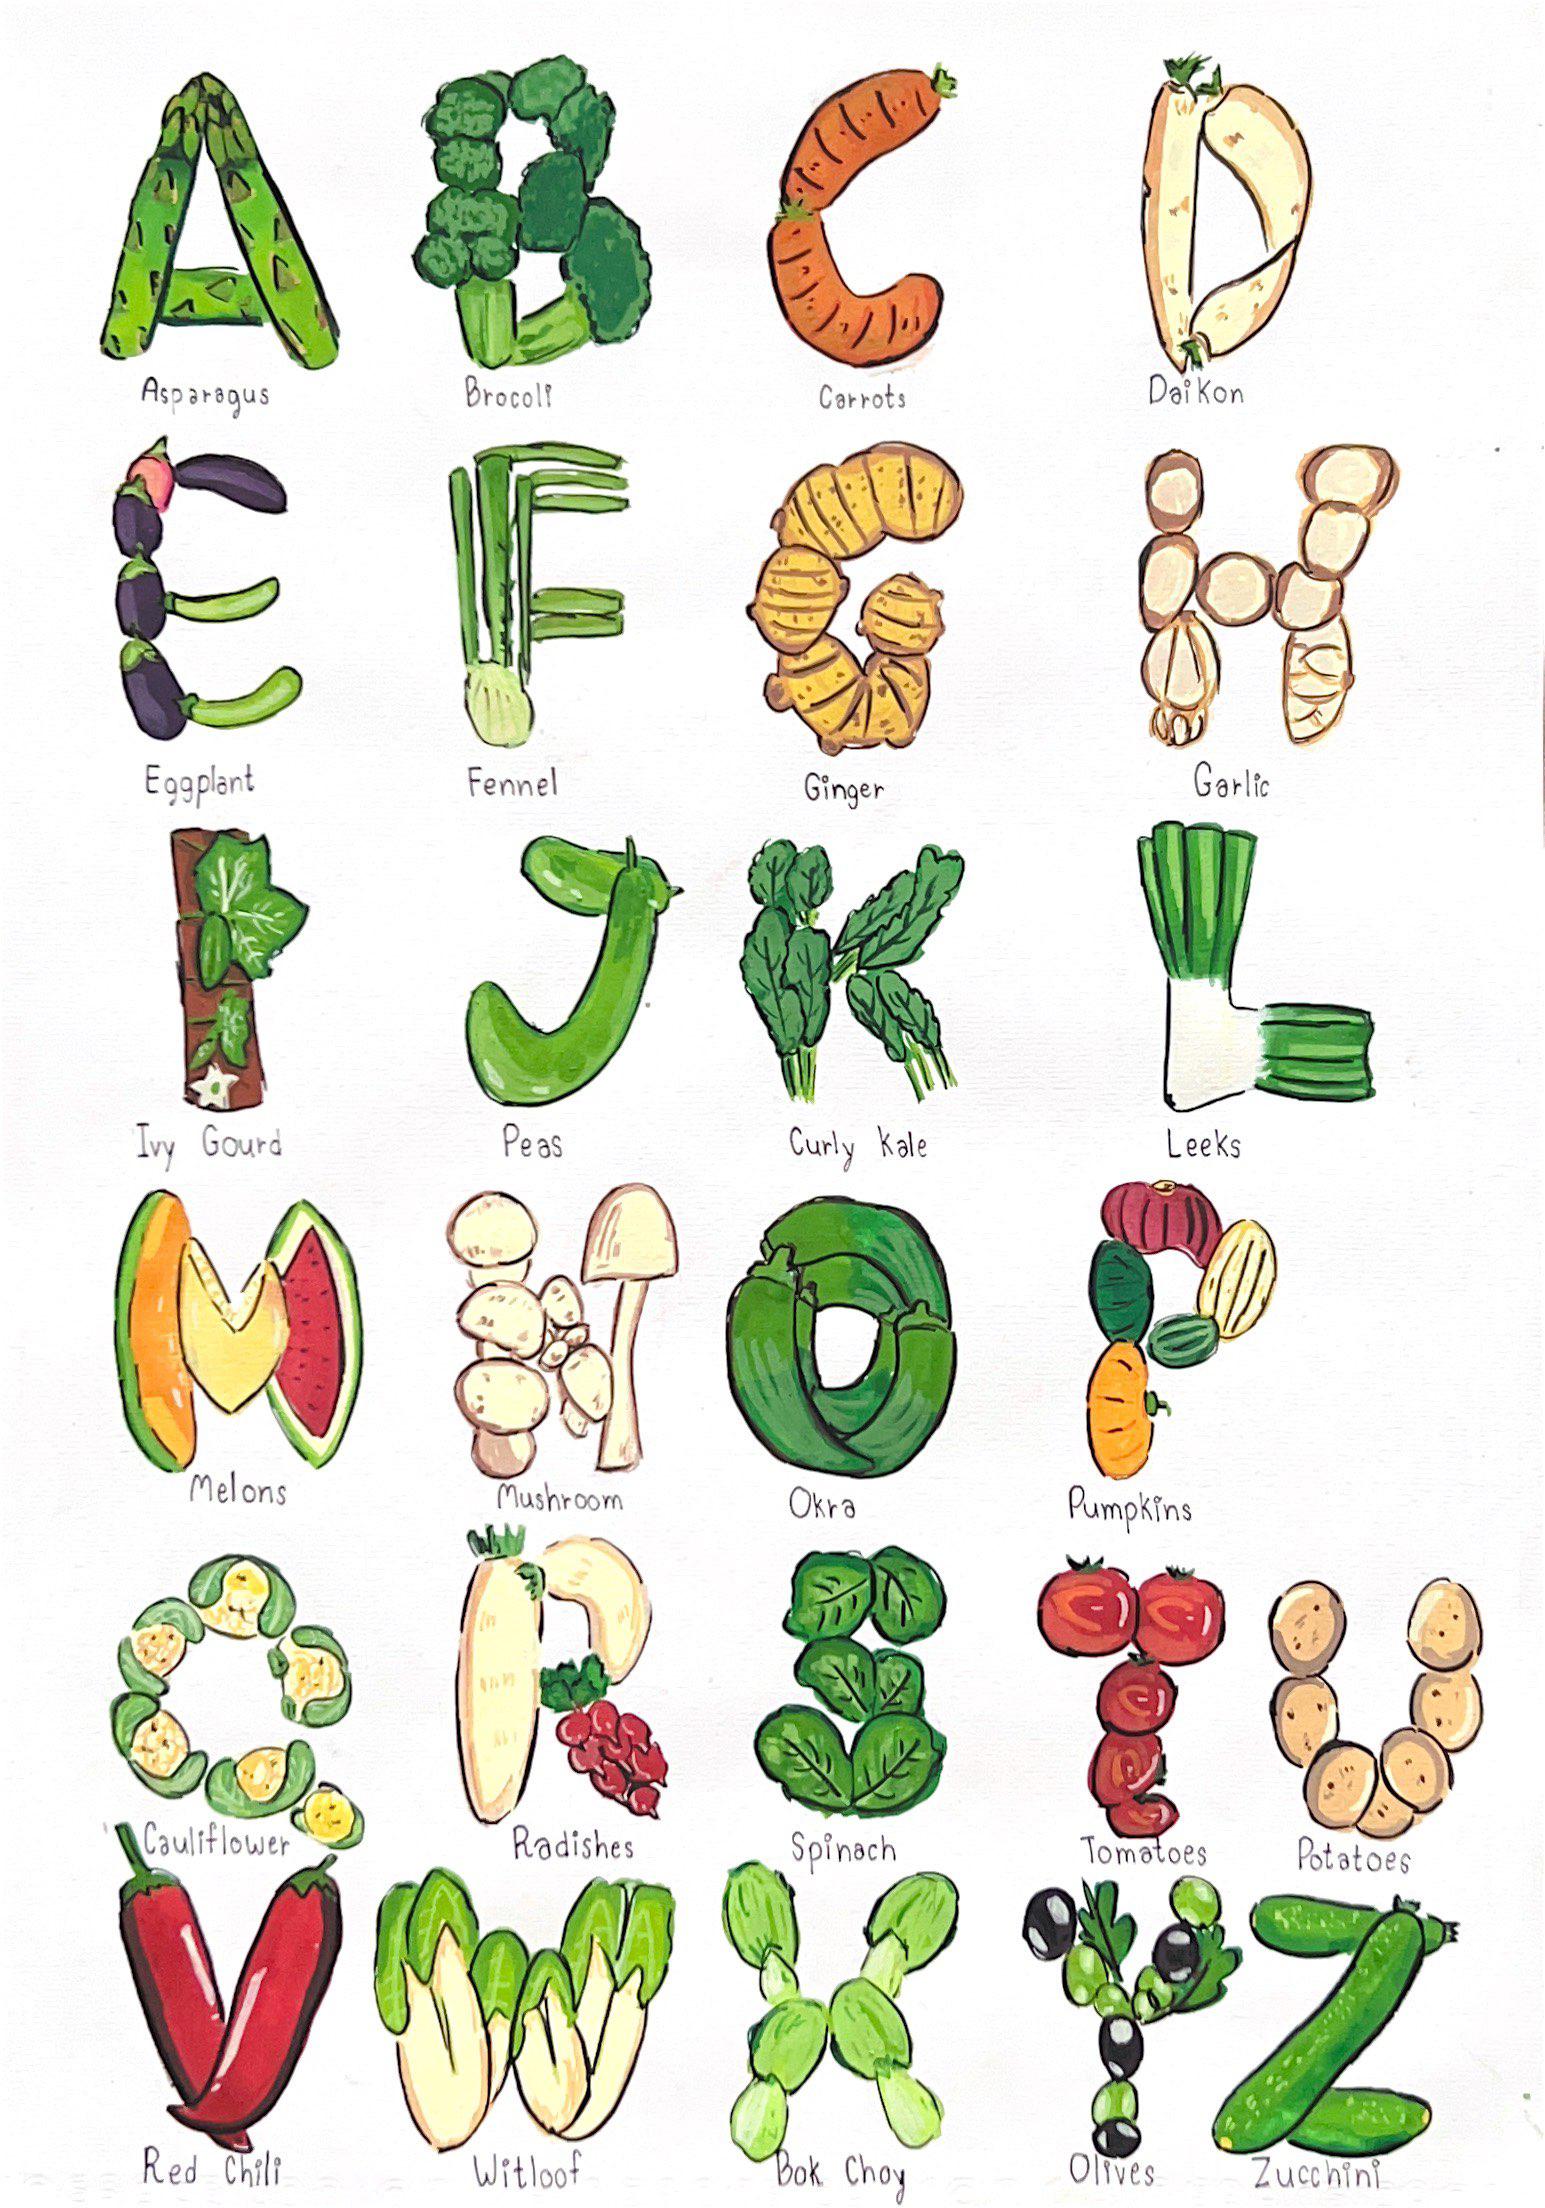 Asparagus
Brocoli
Carrots
Daikon
Eggplant
Fennel
Ginger
Garlic
Ivy Gourd
Peas
Curly Kale
Leeks
Melons
Mushroom
Okra
Pumpkins
Cauliflower
Radishes
Spinach
Tomatoes
Potatoes
Red Chili
Witloof
Bok Choy
Olives
Zucchini